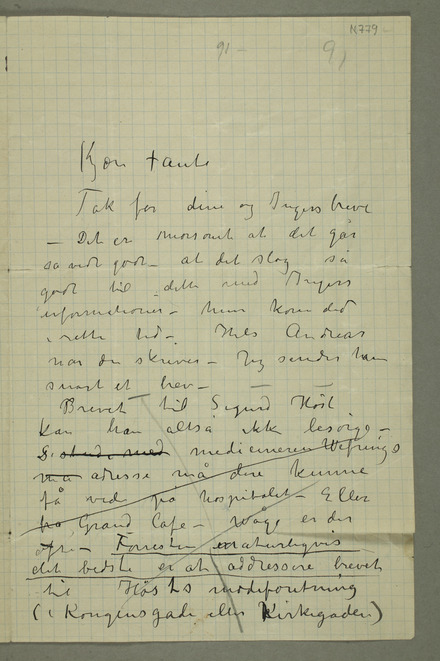 N779
91- 9,
Kjære tante
Tak for dine og Ingers breve
– Det er morsomt at det går
så vidt godt – at det slog så
godt til dette med Ingers
informationer – hun kom da
i rette tid – Hils Andreas
når du skriver – Jeg sender ham
snart et brev –
Brevet til Sigurd Höst
kan han altså ikke besörge –
medicineren
adresse må dere kunne
få vide på hospitalet – Eller
Grand Cafe – er der
ofte – Forresten naturligvis
det bedste er at addressere brevet
til Hösts modeforretning
(i Kongensgade eller Kirkegaden)